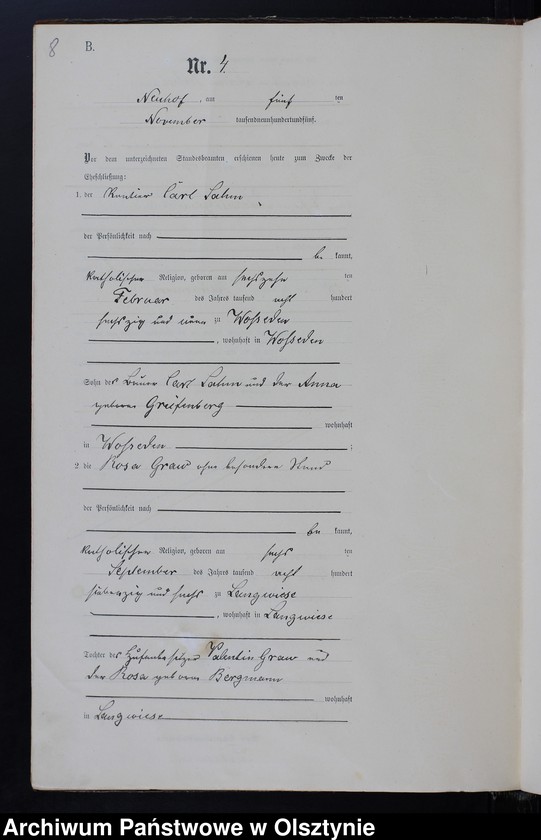 8
B.
Nr. 4.
Neuhof, am fünf ten
November tausendneunhundertundfünf.
Vor dem unterzeichneten Standesbeamten erschienen heute zum Zwecke der
Eheschließung:
1. der Rentier Carl Sahm
der Persönlichkeit nach
be kannt,
katholischer Religion, geboren am sechszehn ten
Februar des Jahres tausend acht hundert
sechszig und neun zu Woßseden
, wohnhaft in Woßseden
Sohn des Bauer Carl Sahm und der Anna
geborene Greifenberg
wohnhaft
in Woßseden ;
2. die Rosa Graw ohne besonderen Stand
der Persönlichkeit nach
be kannt,
katholischer Religion, geboren am sechs ten
September des Jahres tausend acht hundert
siebenzig und sechs zu Langwiese
, wohnhaft in Langwiese
Tochter des Hufenbesitzers Valentin Graw und
der Rosa geborene Bergmann
wohnhaft
in Langwiese
Archiwum Państwowe w Olsztynie